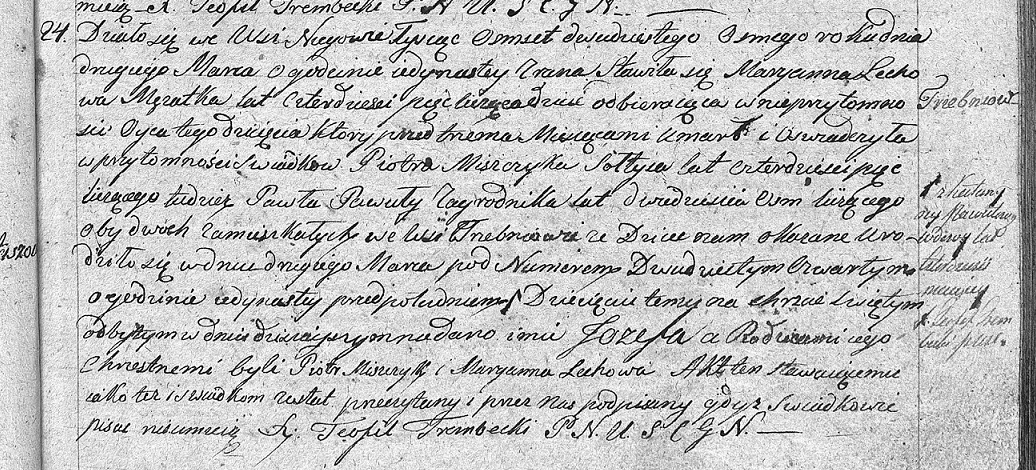 mieią X. Teofil Trembecki P. N. U. S. C. G. N.
24. Działo się we Wsi Niegowie Tysiąc Osmset dwudziestego Osmego roku dnia
drugiego Marca o godzinie iedynastey zrana Stawiła się Maryanna Lecho
wa Mężatka lat czterdzieści pięc licząca dzieie odbieraiąca w nieprzytomno
sci Oyca tego dziecięcia który przed trzema Miesiącami umarł i Oswiadczyła
w przytomności Swiadków Piotra Miszczyka Sołtysa lat czterdzieści pięc
liczącego tudzież Pawła Pawuły Zagrodnika lat dwadzieścia Osm liczącego
oby dwóch zamieszkałych we Wsi Trebniowie ze Dziecie nam okazane Uro-
dziło się w dniu drugiego Marca pod Numerem Dwudziestym Czwartym
o godzinie iedynastey przed południem Dziecięciu temu na chrzcie Swiętym
odbytym w dniu dzisieyszym nadano imie Jozefa a Rodzicami iego
Chrzestnemi byli Piotr Miszczyk i Maryanna Lechowa Akt ten stawaiącemu
iako też i swiadkom został przeczytany i przez nas podpisany gdyz Swiadkowie
pisac nieumieią X. Teofil Trembecki P. N. U. S. C. G. N.
Trebniow
z Katarzy
ny
lat
czterdzieści
X. Teofil Trem
becki